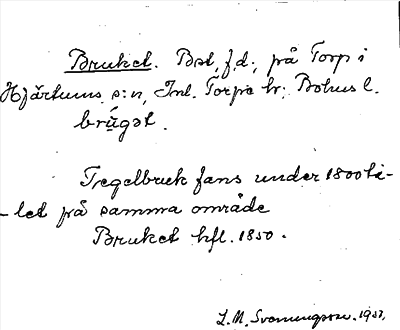 Bruket. Bst, f.d., på Torp i
Hjärtums s:n, Inl. Torpe hr. Bohus l.
brùgət.
Tegelbruk fans under 1800 ta-
-let på samma område
Bruket hfl. 1850.
L. M. Svenungsson. 1933.